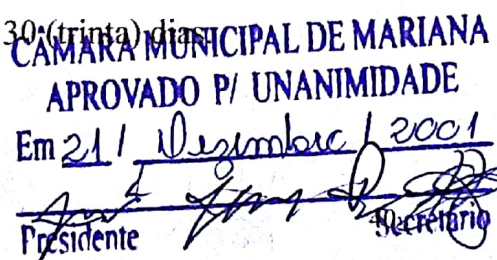 30 (trinta) dias.
CÂMARA MUNICIPAL DE MARIANA
APROVADO P/ UNANIMIDADE
Em 21 / Dezembro / 2001
Presidente
Secretário